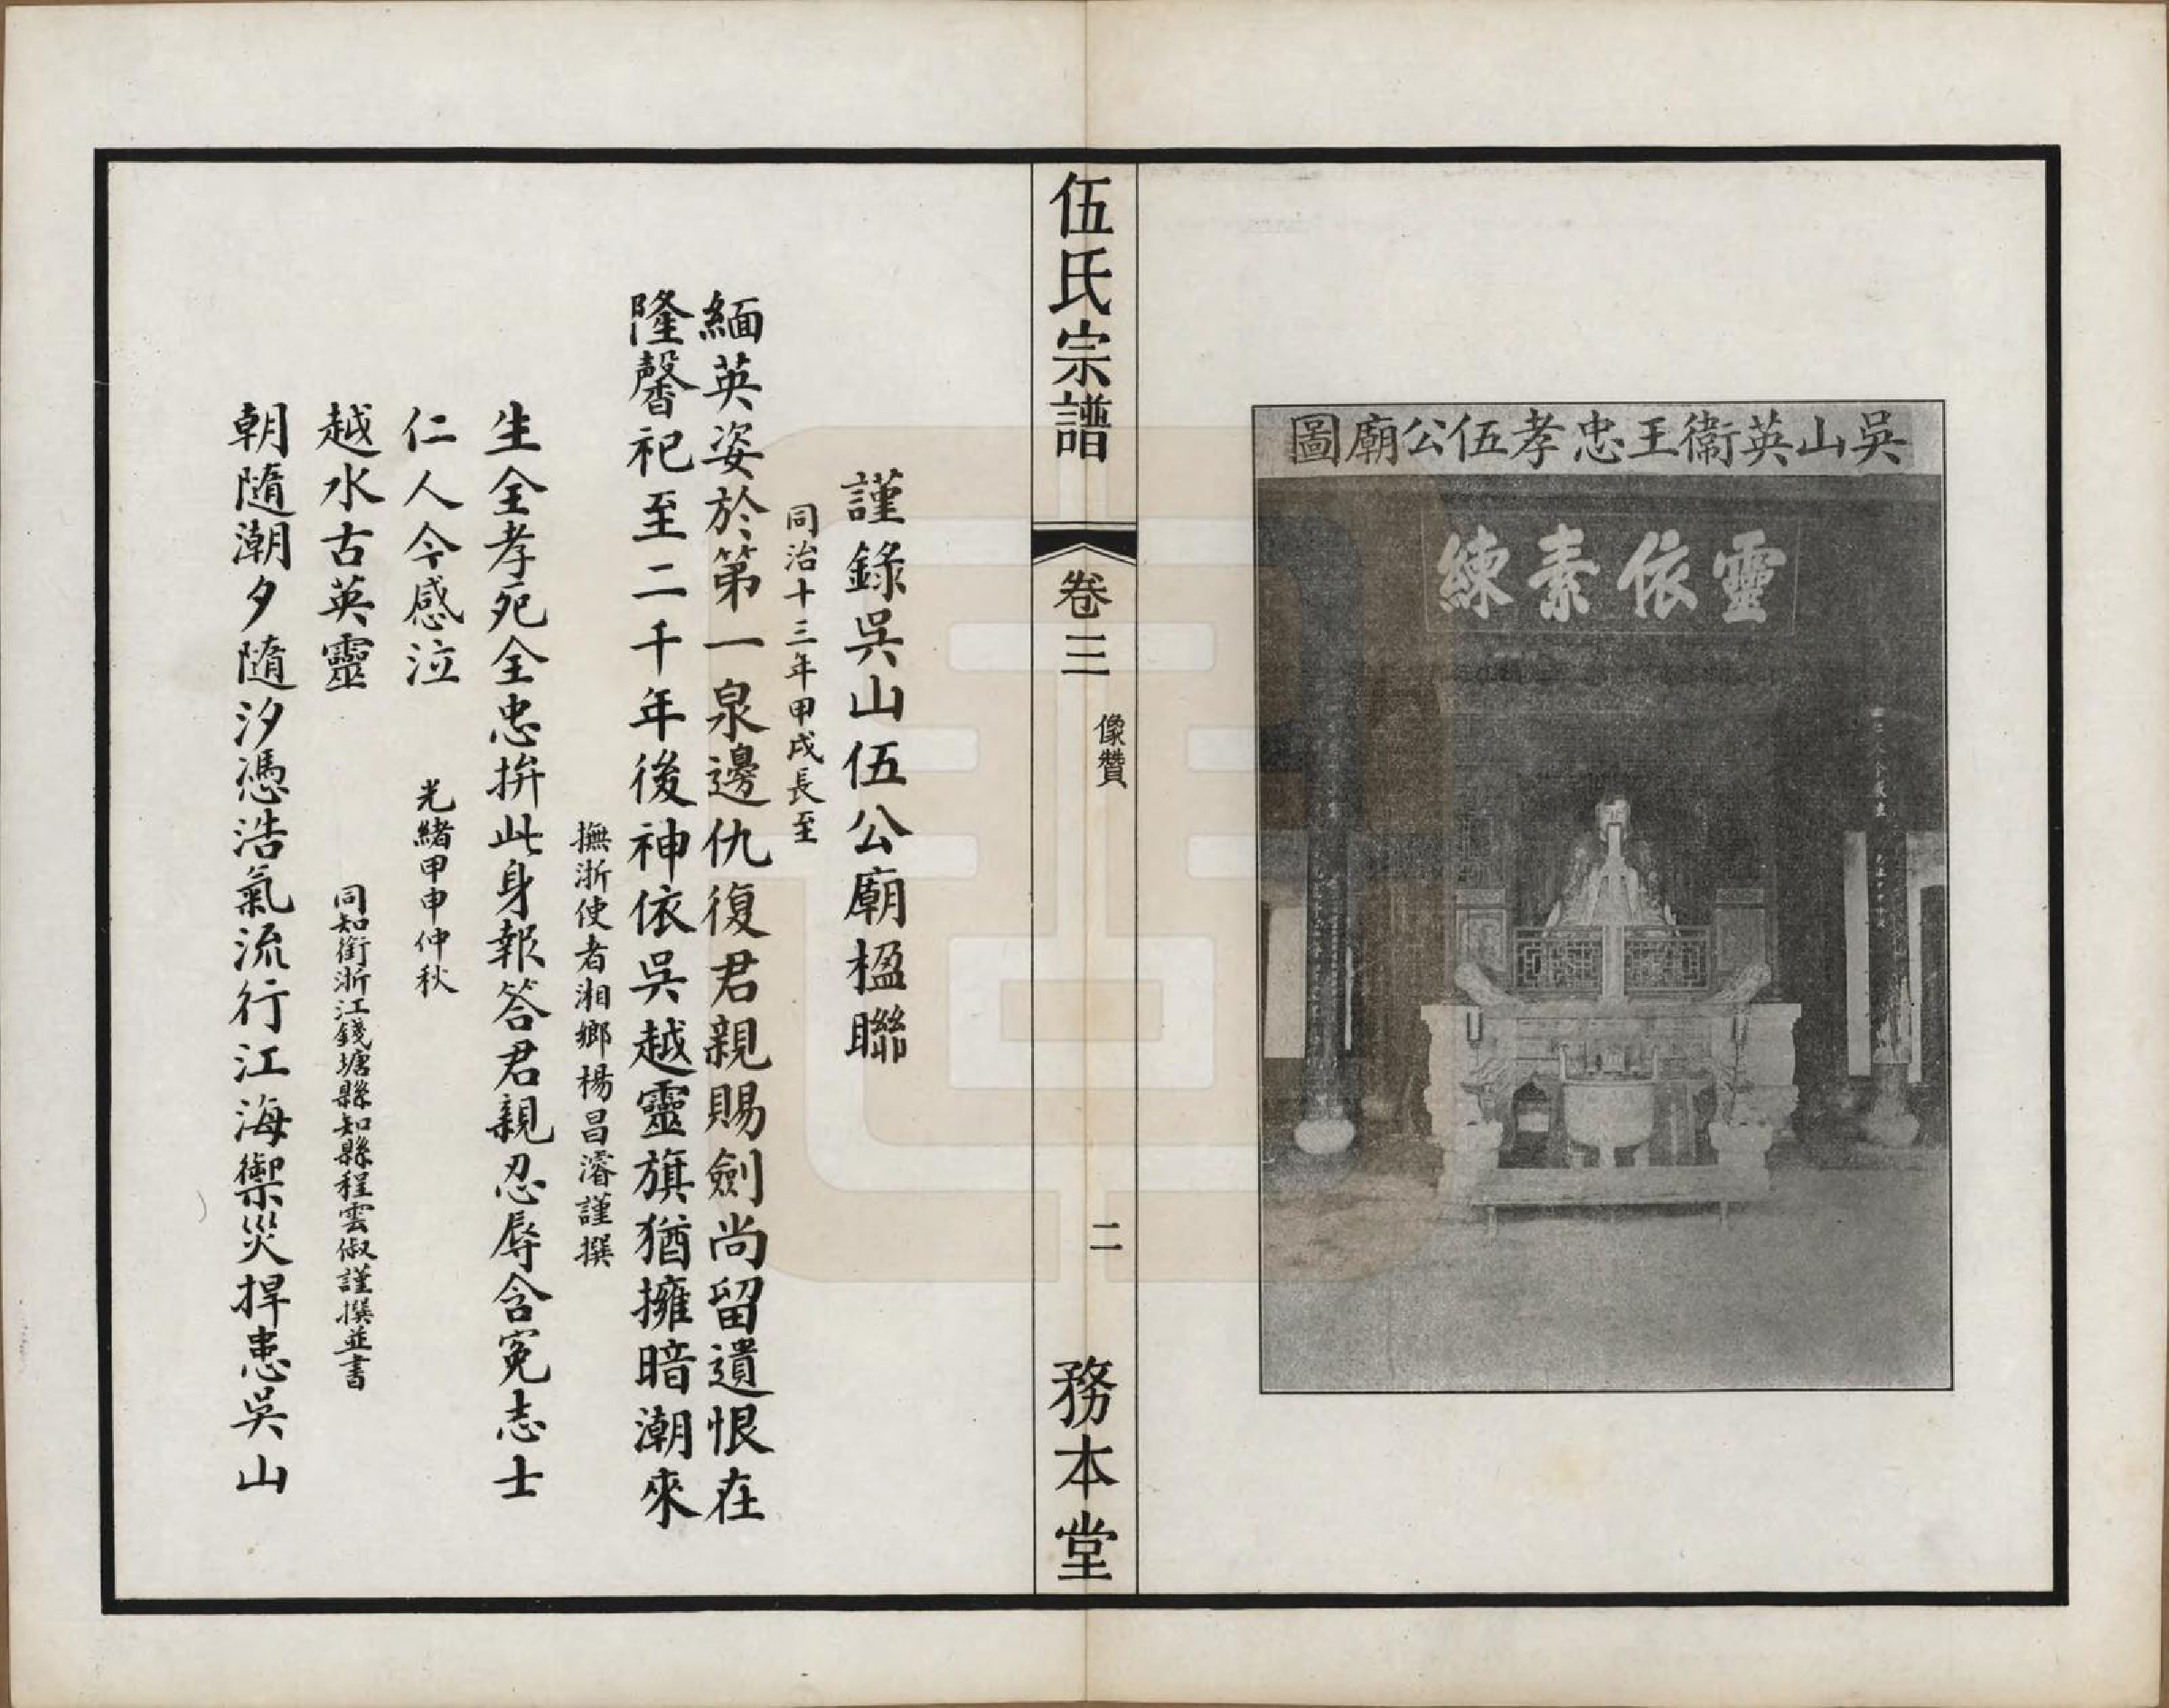 吳山英衞王忠孝伍公廟圖
靈依素練
伍氏宗譜
卷三
像贊
二
務本堂
謹錄吳山伍公廟楹聯
同治十三年甲戌長至
緬英姿於第一泉邊仇復君親賜劍尚留遺恨在
隆馨祀至二千年後神依吳越靈旗猶擁暗潮來
撫浙使者湘鄉楊昌濬謹撰
生全孝死全忠拚此身報答君親忍辱含冤志士
仁人今感泣
光緒甲申仲秋
越水古英靈
同知銜浙江錢塘縣知縣程雲俶謹撰並書
朝隨潮夕隨汐憑浩氣流行江海禦災捍患吳山